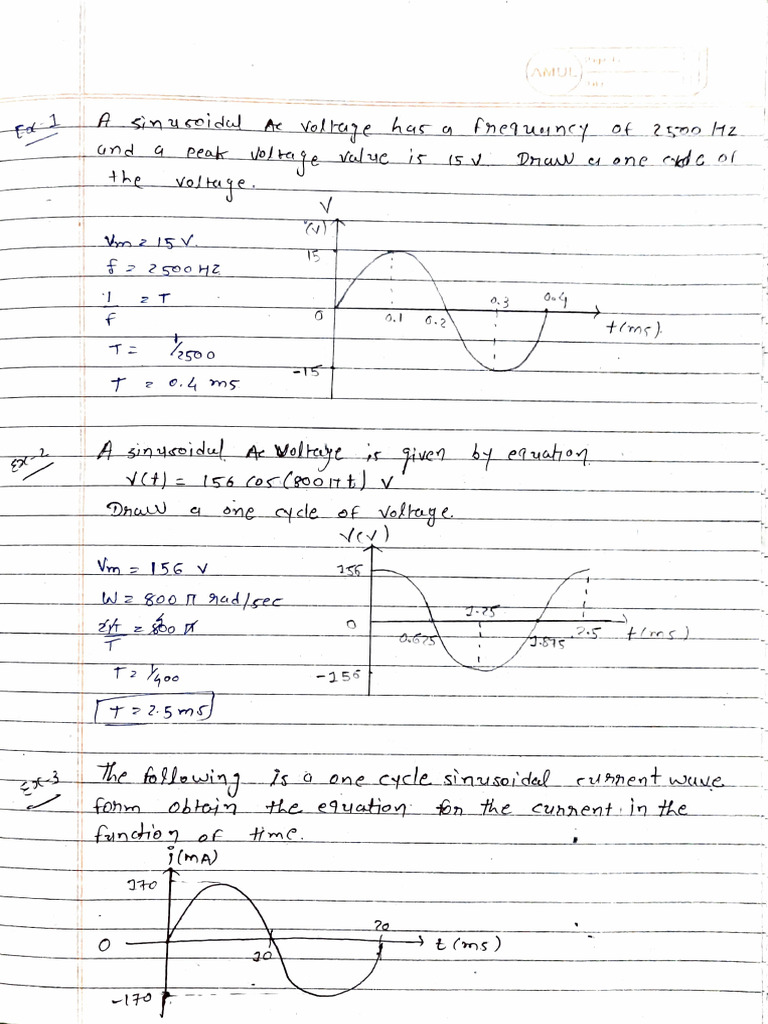 AMUL
Ex-1 A sinusoidal Ac voltage has a frequency of 2500 Hz
and a peak voltage value is 15 V. Draw a one cycle of
the voltage.
V
(V)
Vm = 15 V.
15
f = 2500 HZ
1/f = T
0.3 0.4
0 0.1 0.2
t(ms).
T = 1/2500
-15
T = 0.4 ms
Ex-2 A sinusoidal Ac Voltage is given by equation
V(t) = 156 cos(800πt) V
Draw a one cycle of voltage.
V(V)
Vm = 156 V
156
W = 800 π rad/sec
1.25
2π/T = 800 π
0
0.625 1.875 2.5 t(ms)
T = 1/400
-156
T = 2.5 ms
Ex-3 The following is a one cycle sinusoidal current wave
form obtain the equation for the current in the
function of time.
i(mA)
170
20
0 10 t(ms)
-170